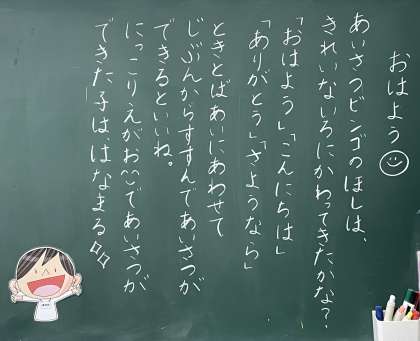 おはよう☺
あいさつビンゴのほしは、
きれいないろにかわってきたかな?
「おはよう」「こんにちは」
「ありがとう」「さようなら」
ときとばあいにあわせて
じぶんからすすんであいさつが
できるといいね。
にっこりえがお^^であいさつが
できた子は、はなまる